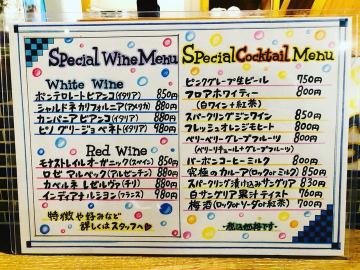 Special Wine Menu
White Wine
ポンテロートビアンコ(イタリア) 850円
シャルドネカリフォルニア(アメリカ) 880円
カンパニアビアンコ(イタリア) 880円
ピノグリージョベネト(イタリア) 980円
Red Wine
モナストレイルオーガニック(スペイン) 850円
ロゼ マルベック(アルゼンチン) 880円
カベルネ レゼルヴァ(チリ) 880円
インディアナルミヨン(フランス) 980円
特徴や好みなど
詳しくはスタッフへ
Special Cocktail Menu
ピンクグレープ生ビール 750円
フロアホワイティー 800円
(白ワイン+紅茶)
スパークリングジンワイン 850円
フレッシュオレンジモヒート 800円
ベリーベリーグレープフルーツ 800円
(ベリーリキュール+グレープフルーツ)
バーボンコーヒーミルク 800円
究極のカルーア(Rock or ミルク) 850円
スパークリング漬け込みサングリア 830円
白サングリア果汁テイスト 760円
梅酒(Rock or ソーダ or 紅茶) 700円
-税込価格です-